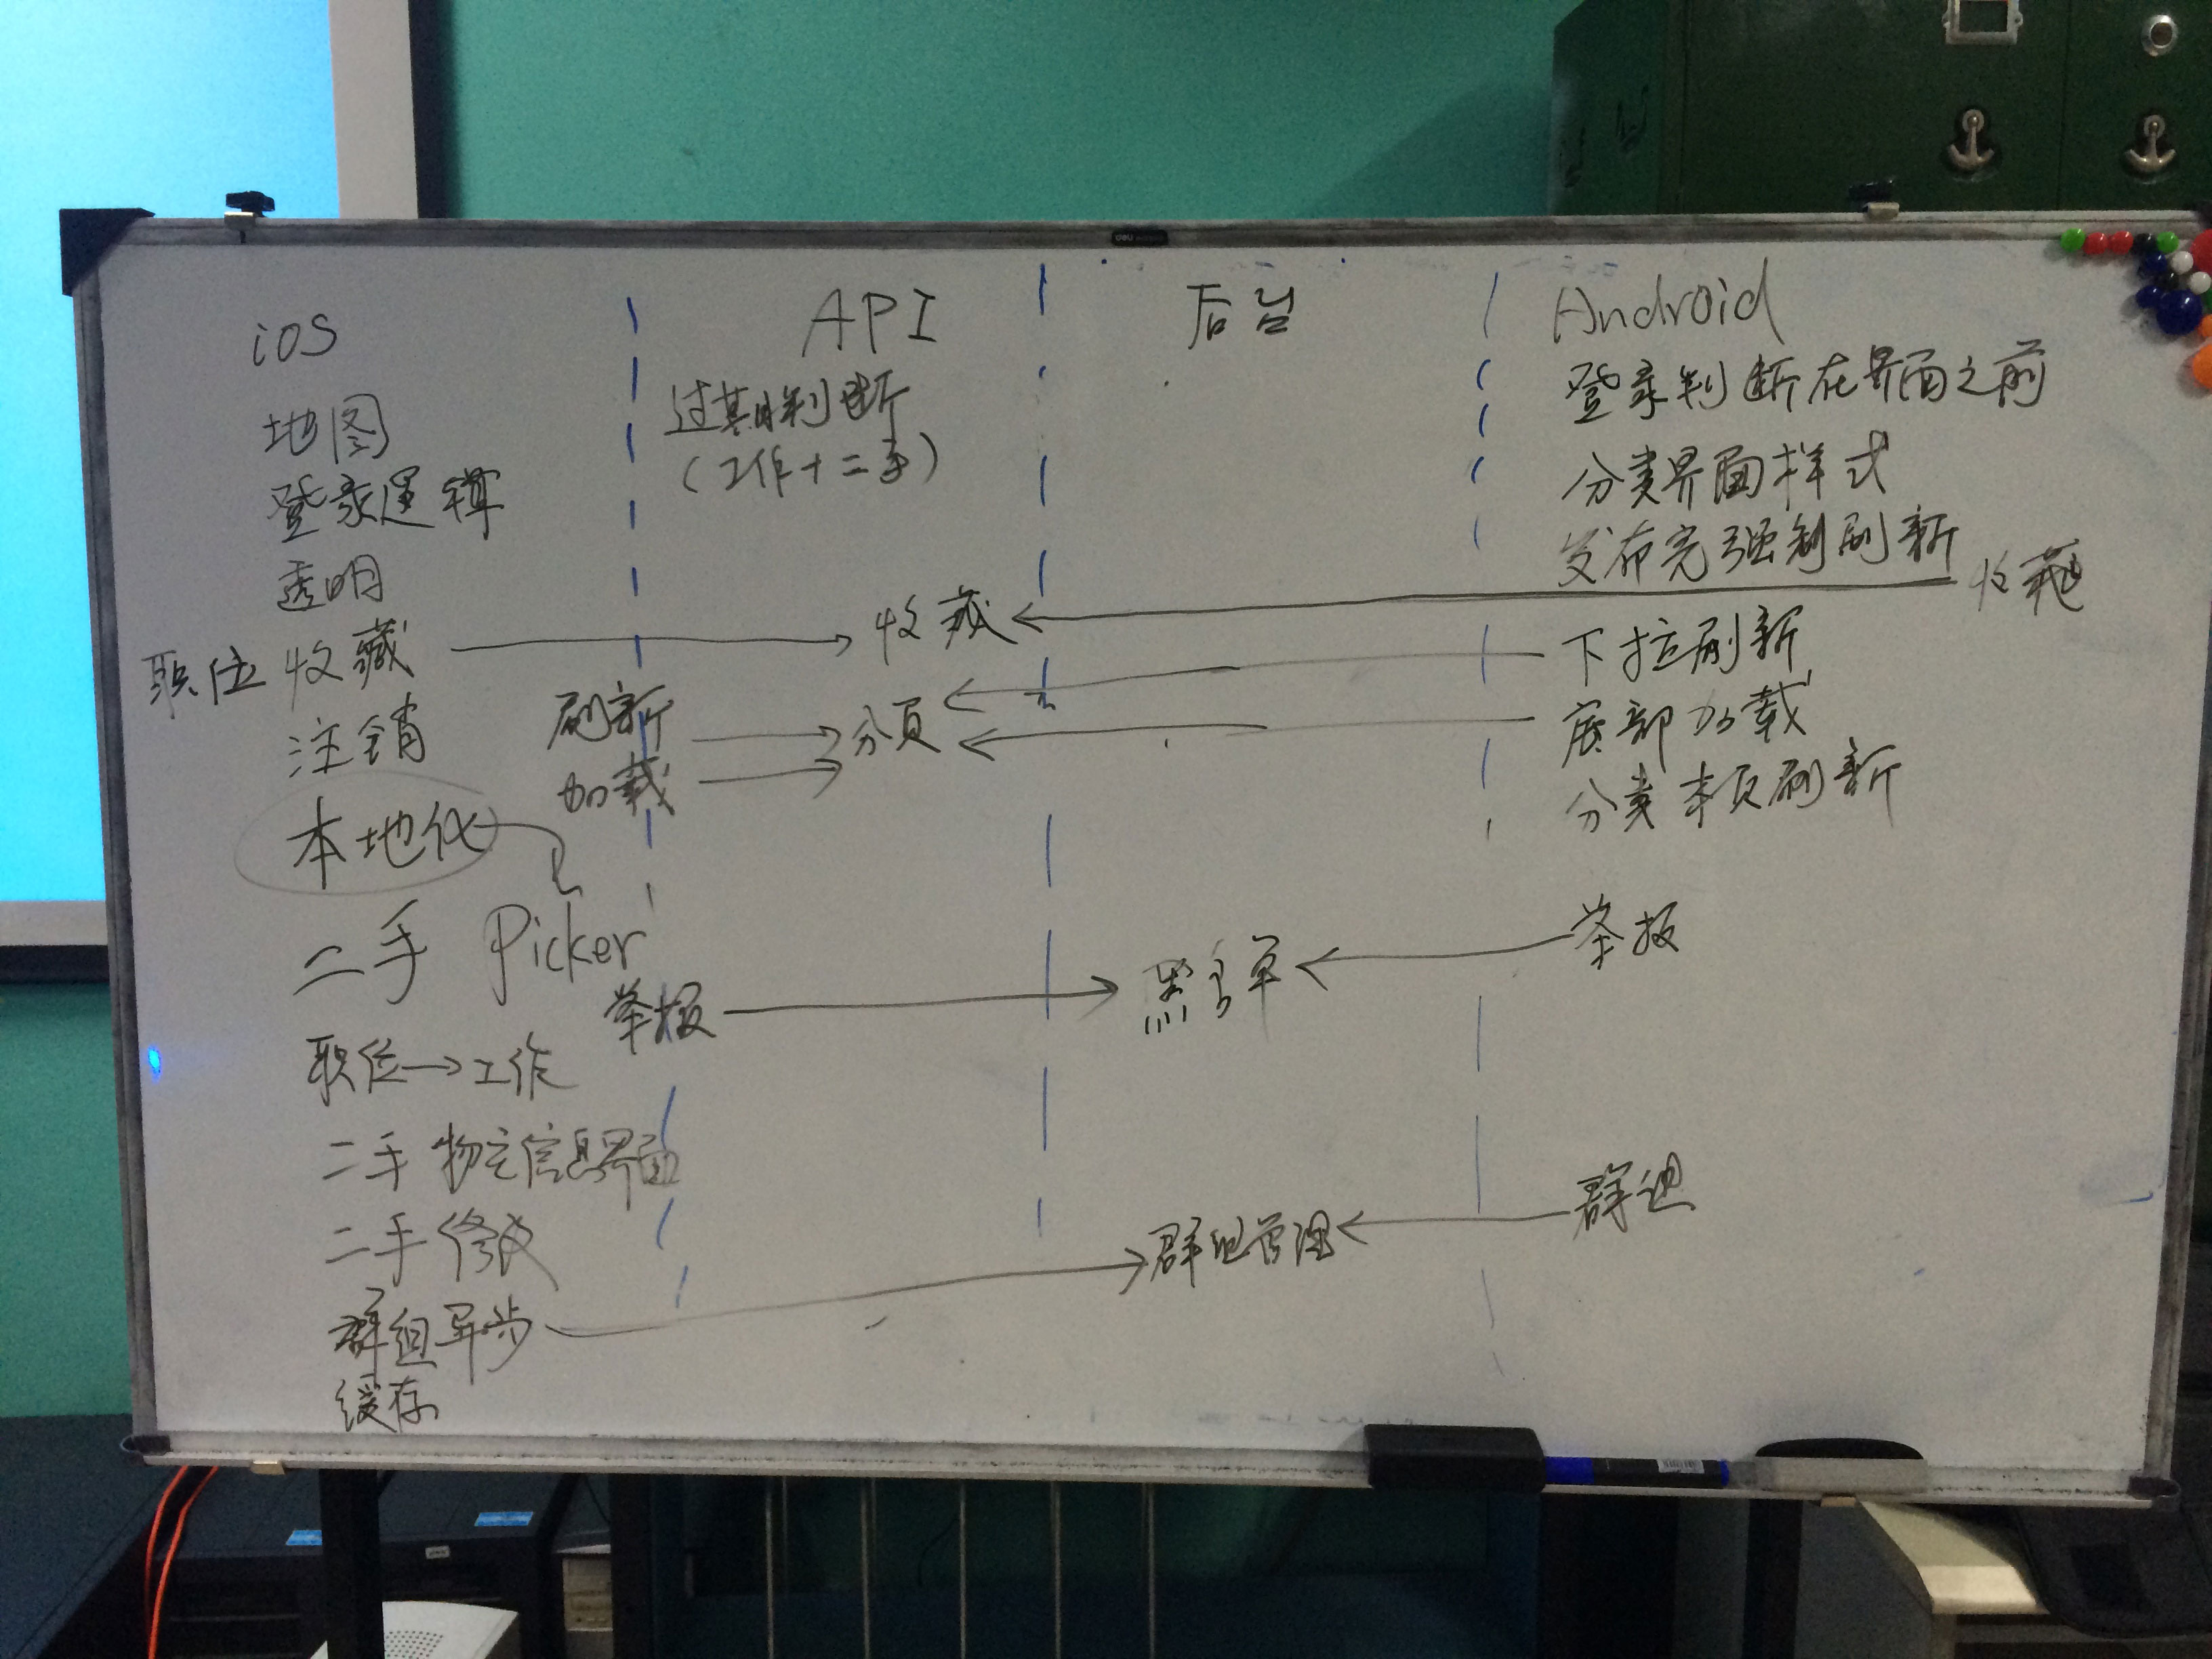 iOS
地图
登录逻辑
透明
职位 收藏
注销
刷新
加载
本地化
二手 Picker
举报
职位→工作
二手 物主信息界面
二手 修改
群组异步
缓存
API
过期判断
(工作+二手)
收藏
分页
后台
黑名单
群组管理
Android
登录判断在界面之前
分类界面样式
发布完强制刷新
收藏
下拉刷新
底部加载
分类本页刷新
举报